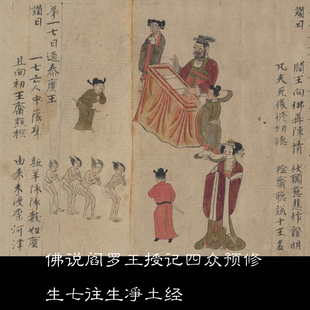 讚曰
閻王向佛再陳情 伏願慈悲作證明
凡夫死後修功德 檢齋聽說十王名
第一七日過秦廣王
讚曰
一七亡人中蔭身 駈羊隊隊數如塵
且向初王齋點檢 由來未渡奈河津
佛说阎罗王授记四众预修
生七往生淨土经